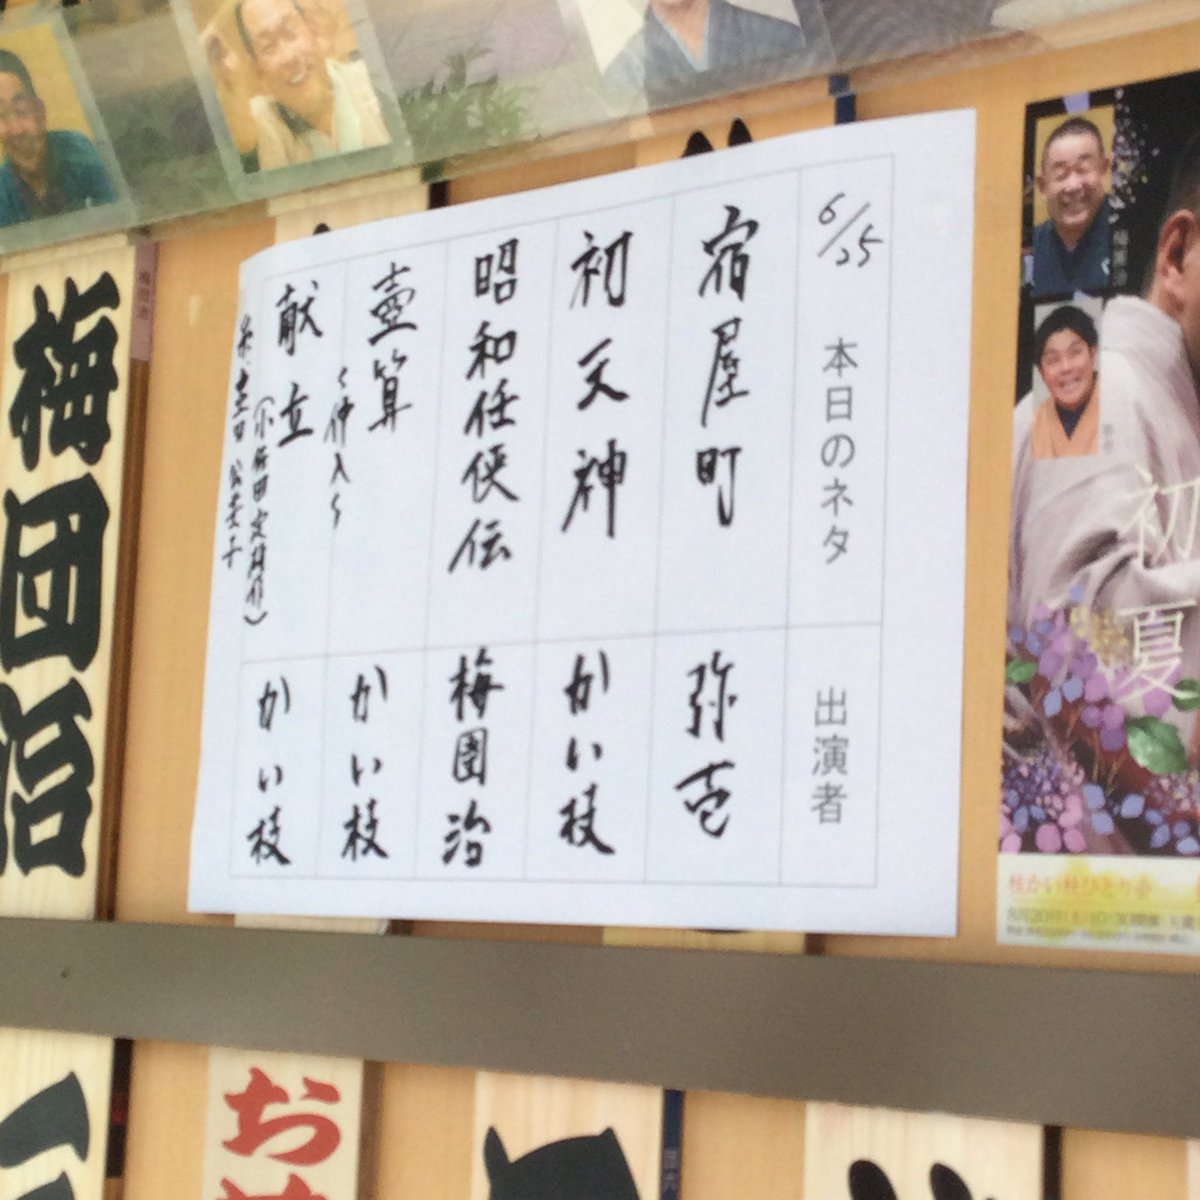 6/25 本日のネタ 出演者
宿屋町 弥壱
初天神 かい枝
昭和任侠伝 梅團治
壺算 かい枝
〜仲入〜
献立 かい枝
梅団治
初夏
桂かい枝ひとり会
お